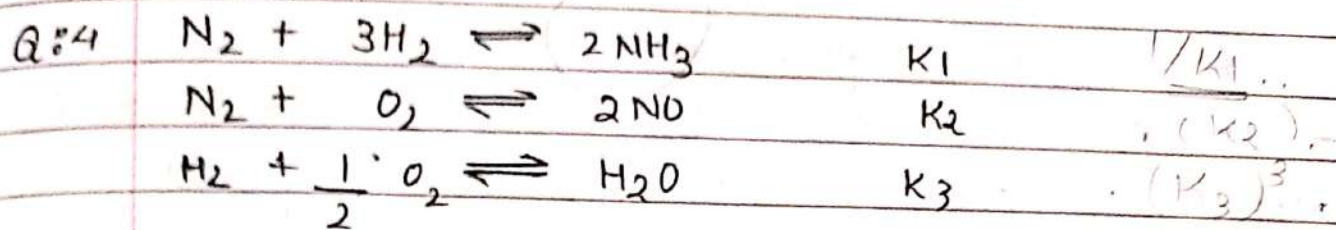 Q:4 N₂ + 3H₂ ⇌ 2NH₃ K1 1/K1..
N₂ + O₂ ⇌ 2NO K2 (K2)
H₂ + 1/2 O₂ ⇌ H₂O K3 (K3)³